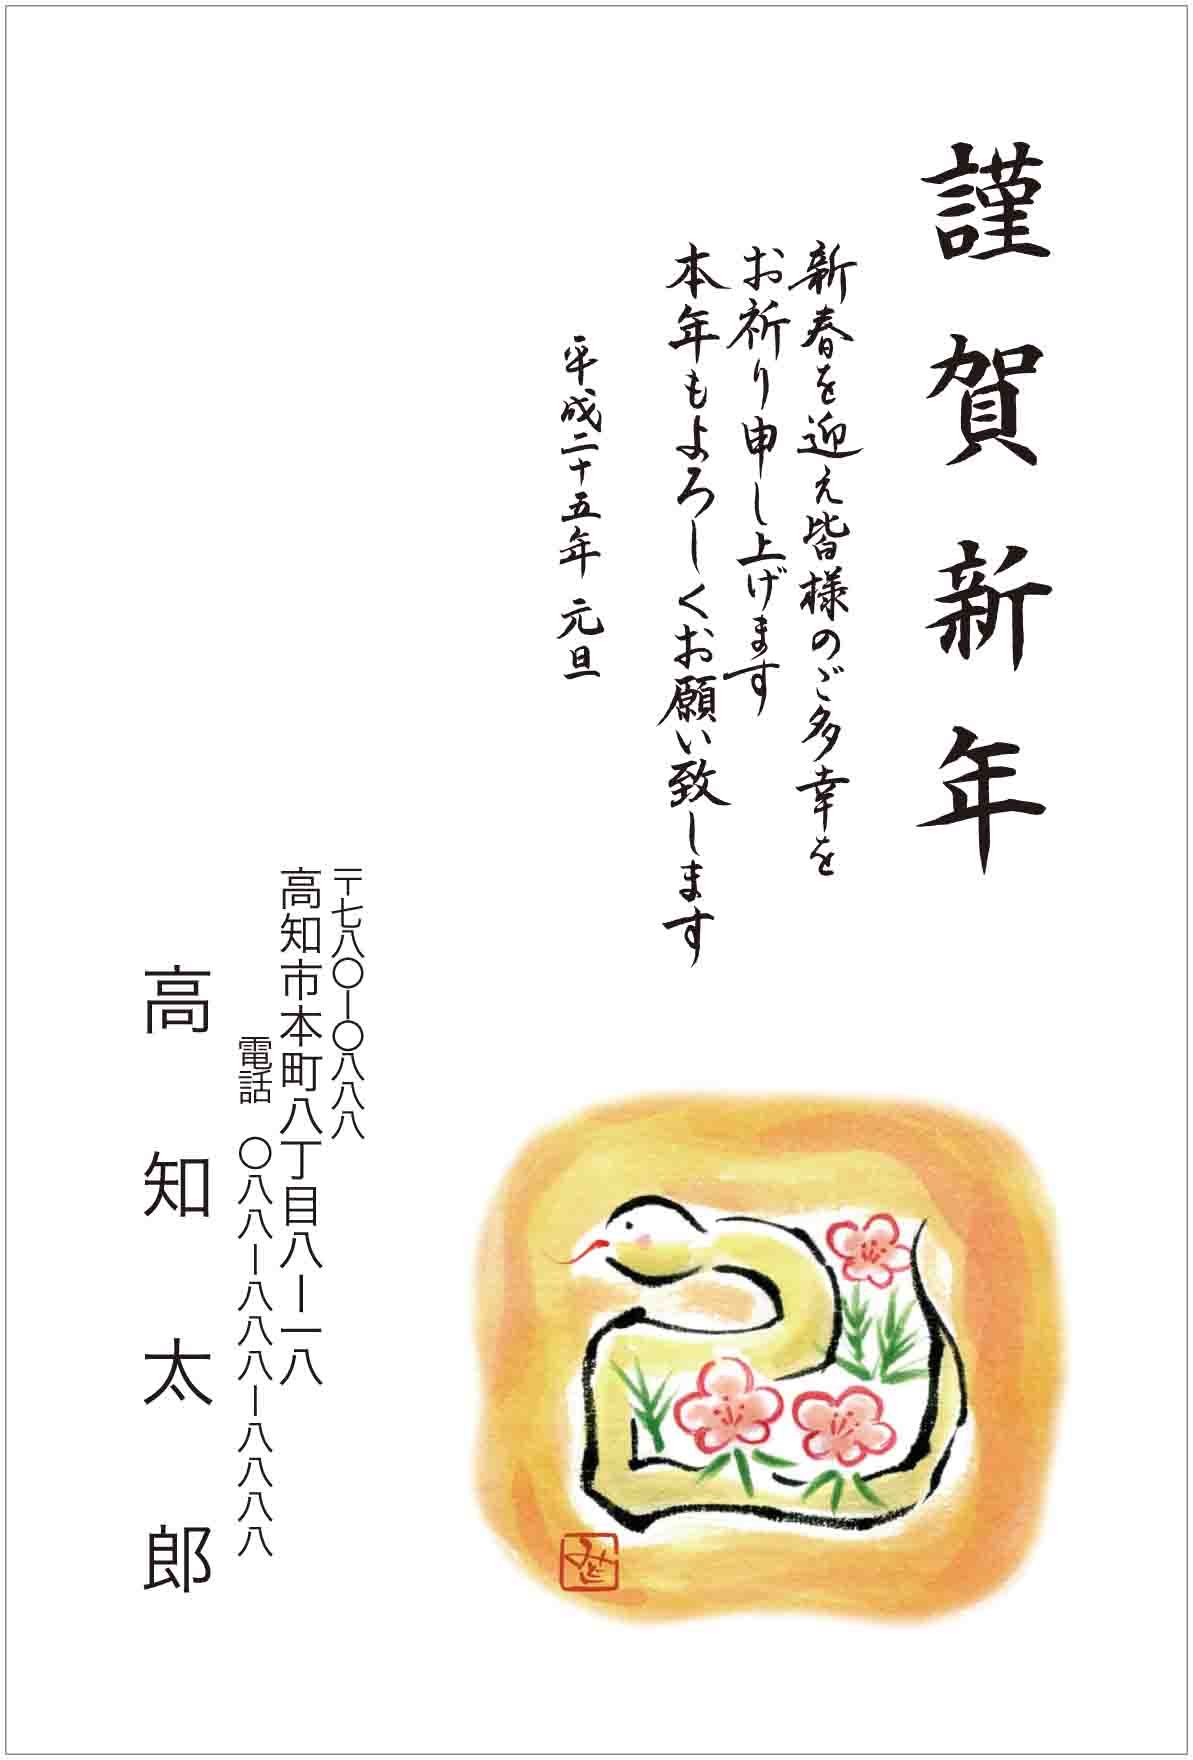 謹賀新年
新春を迎え皆様のご多幸を
お祈り申し上げます
本年もよろしくお願い致します
平成二十五年 元旦
〒七八〇ー〇八八八
高知市本町八丁目八ー一八
電話 〇八八ー八八八ー八八八八
高知太郎